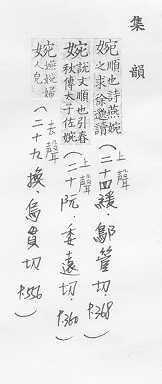 集韻
婉 順也詩燕婉之求徐邈讀
(上聲二十四緩·鄔管切·P.368)
婉 說文順也引春秋傳太子佐婉
(上聲二十阮·委遠切·P.360)
婉 婉婦人皃
(去聲二十九換·烏貫切·P.556)